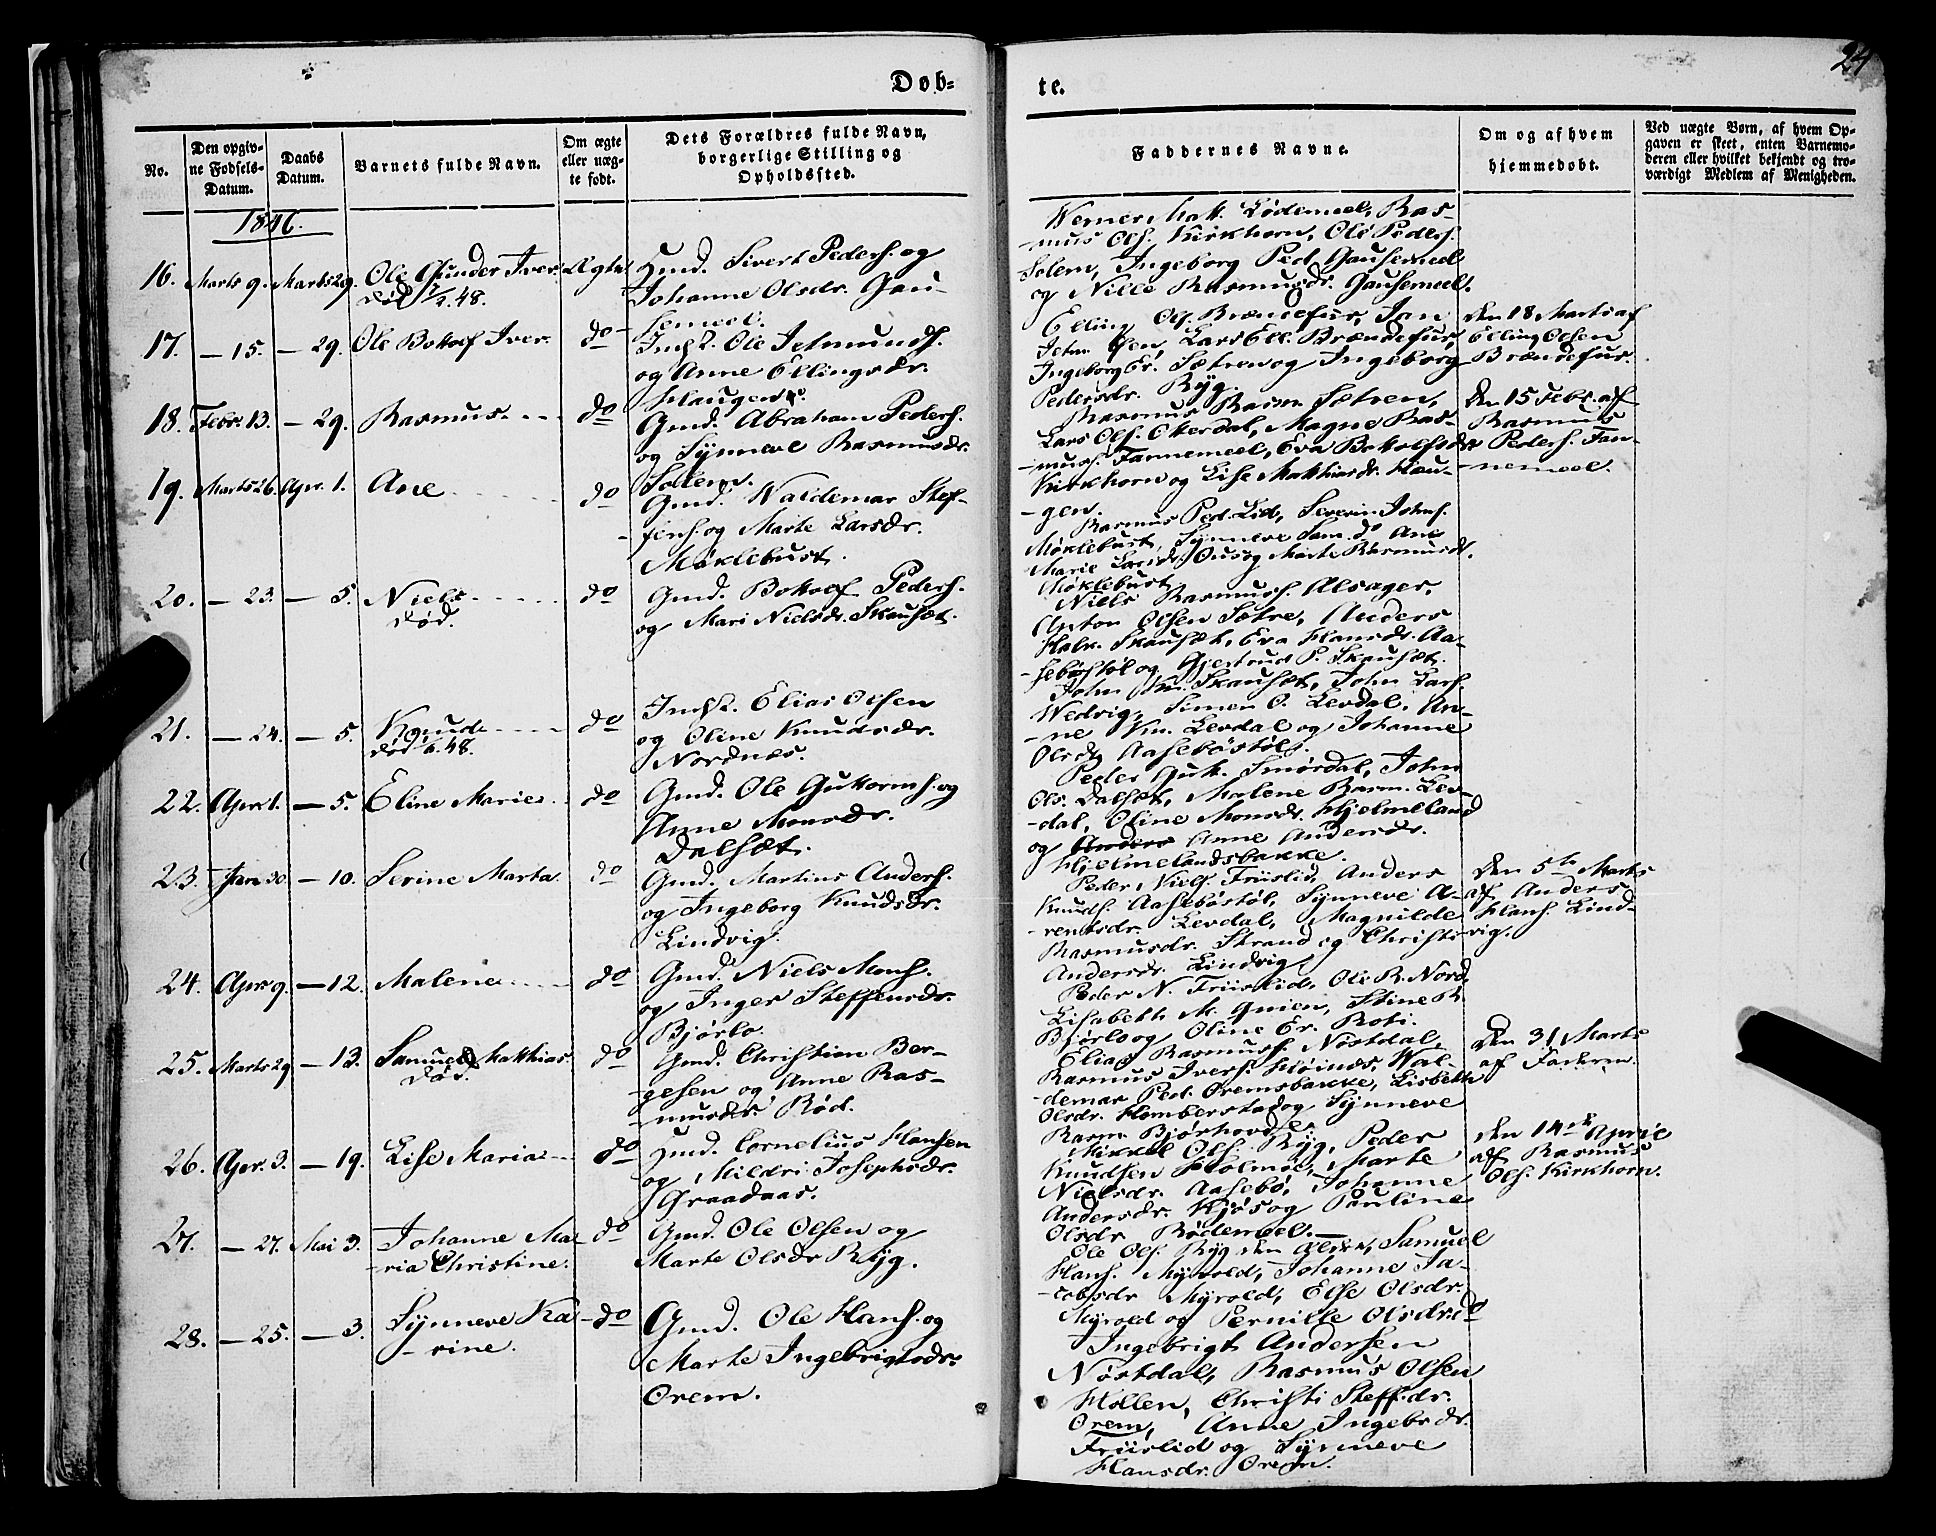 24
Døb-
te.
No.
Den opgiv-
ne Fødsels-
Datum.
Daabs
Datum.
Barnets fulde Navn.
Om ægte
eller uæg-
te født.
Dets Forældres fulde Navn,
borgerlige Stilling og
Opholdssted.
Faddernes Navne.
Om og af hvem
hjemmedøbt.
Ved uægte Børn, af hvem Op-
gaven er skeet, enten Barnemo-
deren eller hvilket bekjendt og tro-
værdigt Medlem af Menigheden.
1846.
16. Marts 9. Marts 29. Ole Gunder Iver. Ægte
død 48.
Hmd. Sivert Peders. og
Johanne Olsdr. Gau-
semeel.
Werner Matt. Lødemeel, Ras-
mus Ols. Kirkhorn, Ole Peders.
Solem, Ingeborg Ped. Gausemeel
og Nille Rasmusdr. Gausemeel.
17. — 15. — 29. Ole Bottolf Iver. do
Inds. Ole Jetmunds.
og Anne Ellingsdr.
Haugen.
Elling Ols. Brændefur, Jan
Jetm. Lars Ell. Brændefur,
Ingeborg Er. Sætren og Ingeborg
Pedersdr. Ryg.
Den 18 Marts af
Elling Olsen
Brændefur.
18. Febr. 13. — 29. Rasmus do
Gmd. Abraham Peders.
og Synneve Rasmusdr.
Solem.
Rasmus Rasm. Sætren,
Lars Ols. Otterdal, Magne Ras-
muss. Fannemeel, Eva Bottolfsdr.
Kirkhorn og Lise Matthiasdr. Hau-
-gen.
Den 15 Febr. af
Rasmus
Peders. Fan-
-nemeel.
19. Marts 26. Apr. 1. Ane do
Gmd. Valdemar Stef-
-fens. og Marte Larsdr.
Møklebust.
Rasmus Ped. Lid, Severin Johns.
Møklebust, Synneve Sam. do Ane
Marie Larsdr. og Marte Rasmusdr.
Møklebust
20. — 23. — 5. Niels do
død.
Gmd. Bottolf Peders.
og Mari Nielsdr. Skauset.
Niels Rasmuss. Alsager,
Anton Olsen Sætre, Anders
Skauset, Eva Hansdr. Aa-
-sebøstøl og Gjertrud P. Skauset.
21. — 24. — 5. Knud do
død 48.
Inds. Elias Olsen
og Oline Knudsdr.
Nordnes.
John Kn. Skauset, John Lars.
Wedvig, Simen O. Levdal, An-
-ne Kn. Levdal og Johanne
Olsdr. Aasebøstøl.
22. Apr. 1. — 5. Eline Marie do
Gmd. Ole Guttorms. og
Anne Monsdr.
Dalset.
Peder Gutt. Smørdal, John
Ols. Dalset, Malene Rasm. Lev-
-dal, Oline Monsdr. Hjelmeland
og Anders Anne Andersdr.
Hjelmelandsbakke.
23. Jan. 30 — 10. Serine Marta do
Gmd. Martinus Anders.
og Ingeborg Knudsdr.
Lindvig.
Peder Niels. Friislid, Anders
Knuds. Aasebøstøl, Synneve A-
-rentsdr. Levdal, Magnilde
Rasmusdr. Strand og Christi
Andersdr. Lindvig
Den 5te Marts
af Anders
Hans. Lind-
vig.
24. Apr. 9. — 12. Malene do
Gmd. Niels Mons.
og Inger Steffensdr.
Bjørlo.
Peder N. Friislid, Ole R. Nord,
Lisabeth M. Qvien, Stine R.
Bjørlo og Oline Er. Roti.
25. Marts 29 — 13. Samuel Matthias do
død.
Gmd. Christien Bør-
-gesen og Anne Ras-
-musdr. Rød.
Elias Rasmuss. Nøstdal,
Rasmus Ivers. Høines, Wal-
-demar Ped. Oremsbakke, Lisbeth
Olsdr. Homberstad og Synneve
Rasm. Bjørhovde.
Den 31 Marts
af Faderen.
26. Apr. 3. — 19. Lise Maria do
Hmd. Cornelius Hansen
og Mildri Josephsdr.
Graadaas.
Mikkel Ols. Ryg, Peder
Knudsen Holmøe, Marte
Nielsdr. Aasebø, Johanne
Andersdr. Kjøs og Pauline
Olsdr. Rødemeel.
Den 14de April
af Rasmus
Ols. Kirkhorn.
27. — 27. Mai 3. Johanne Ma- do
-ria Christine.
Gmd. Ole Olsen og
Marte Olsdr Ryg.
Ole Ols. Ryg den Ældre, Samuel
Hans. Myrold, Johanne Ja-
-cobsdr Myrold, Else Olsdr.
Myrold og Pernille Olsdr. do
28. — 25. — 3. Synneve Ka- do
-rine.
Gmd. Ole Hans. og
Marte Ingebrigtsdr.
Orem.
Ingebrigt Andersen
Nøstdal, Rasmus Olsen
Hollen, Christi Steff.dr.
Orem, Anne Ingebr.dr.
Friislid og Synneve
Hansdr. Orem.